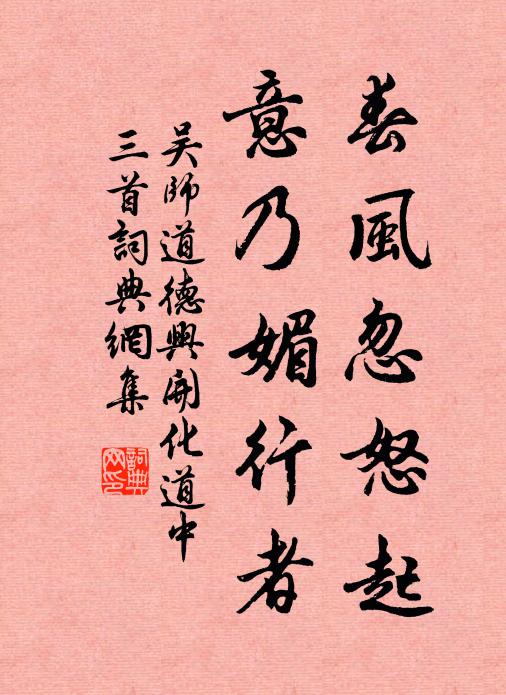 春風忽怒起
意乃媚行者
吴師道德興開化道中
三首詞典網集
詞典網印